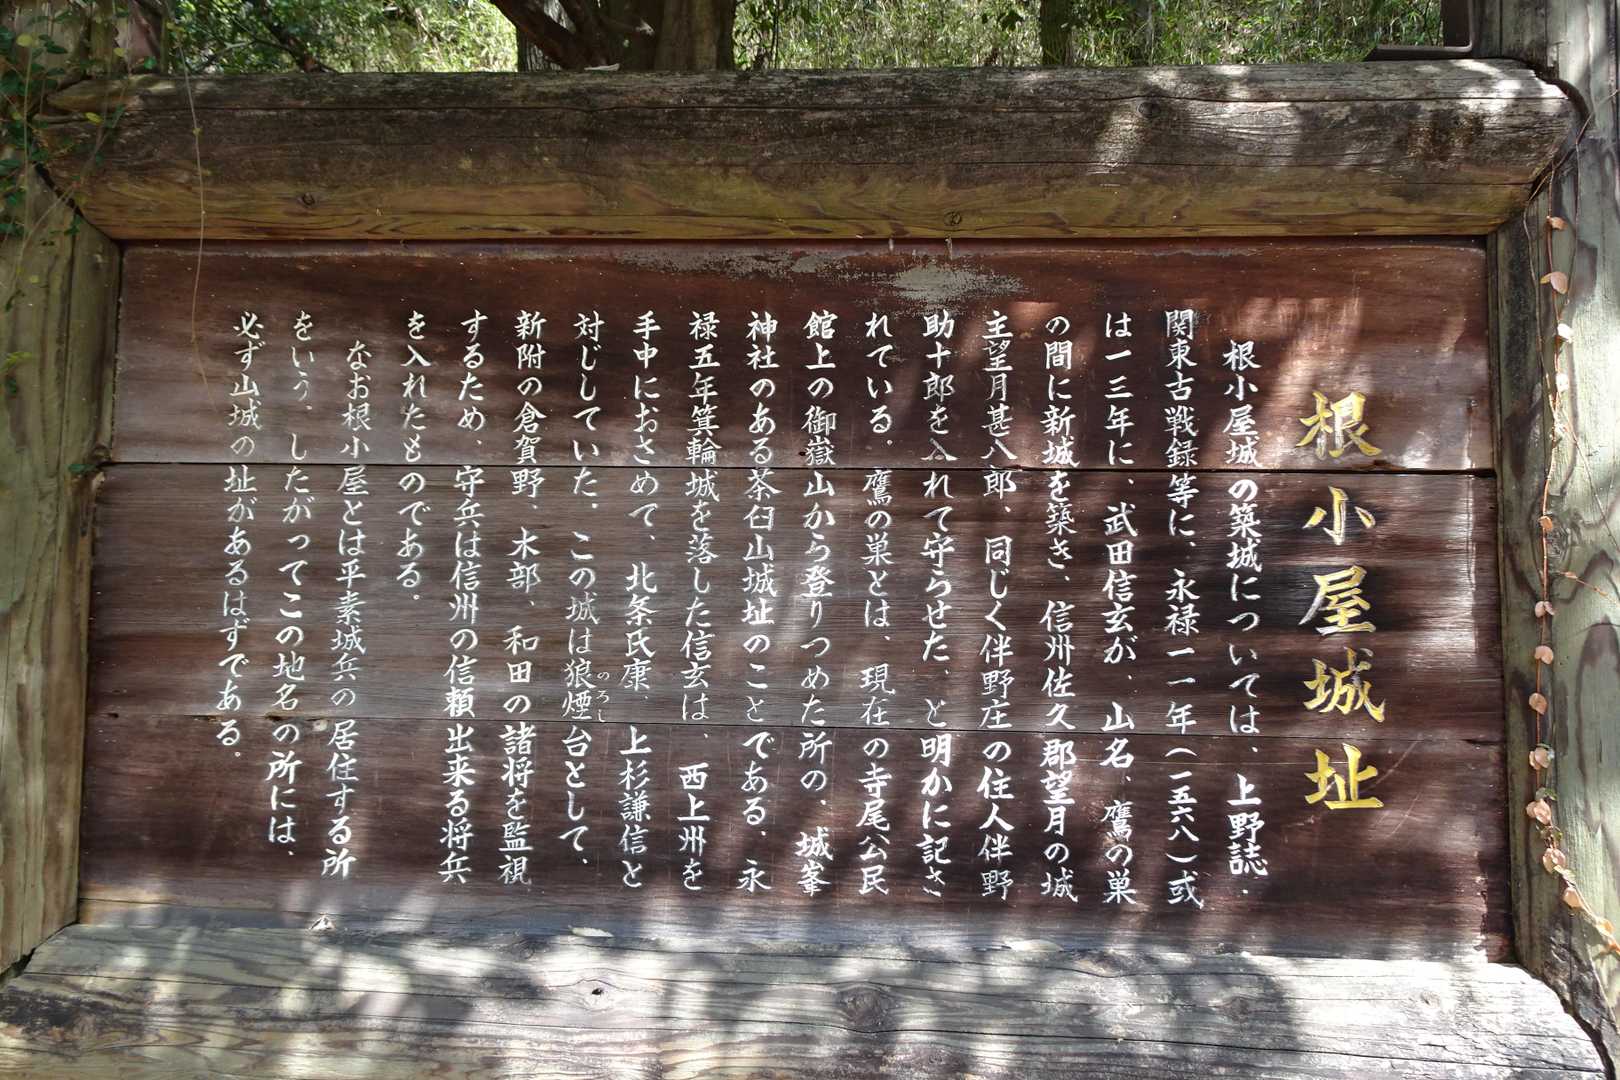 根小屋城址
根小屋城の築城については、上野誌・
関東古戦録等に、永禄一一年(一五六八)或
は一三年に、武田信玄が、山名、鷹の巣
の間に新城を築き、信州佐久郡望月の城
主望月甚八郎、同じく伴野庄の住人伴野
助十郎を入れて守らせた、と明かに記さ
れている。鷹の巣とは、現在の寺尾公民
館上の御嶽山から登りつめた所の、城峯
神社のある茶臼山城址のことである、永
禄五年箕輪城を落した信玄は、西上州を
手中におさめて、北条氏康、上杉謙信と
対じしていた。この城は狼煙台として、
のろし
新附の倉賀野、木部、和田の諸将を監視
するため、守兵は信州の信頼出来る将兵
を入れたものである。
なお根小屋とは平素城兵の居住する所
をいう。したがってこの地名の所には、
必ず山城の址があるはずである。